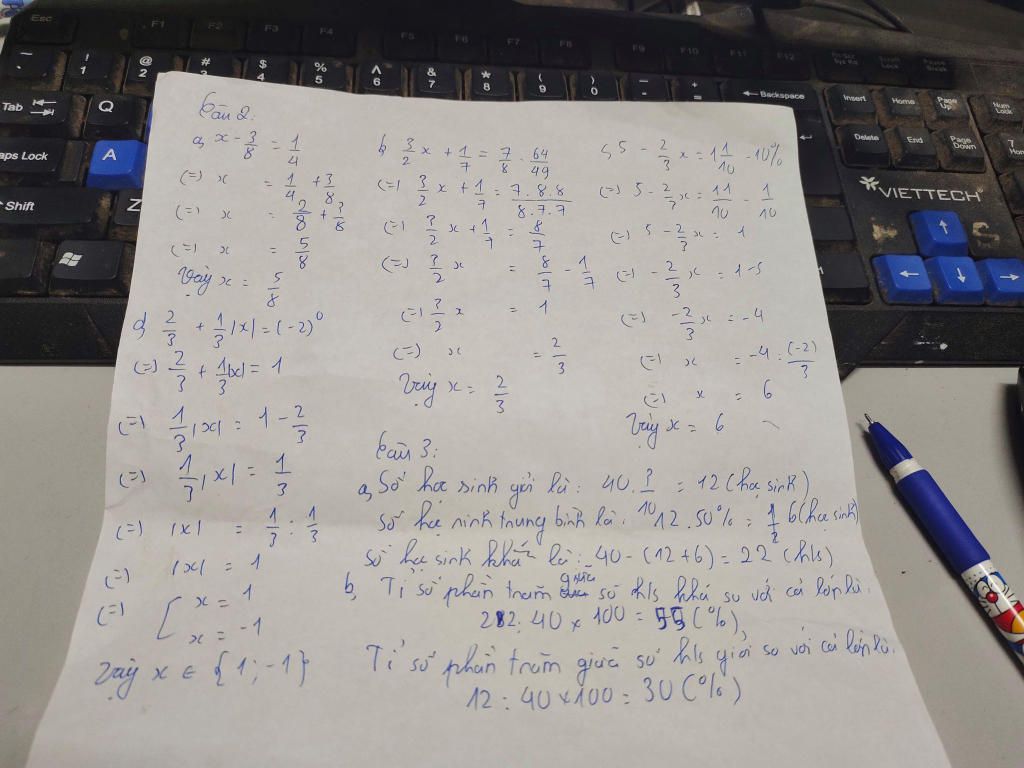 Esc F1 F2 F3 F4 F5 F6 F7 F8 F9 F10 F11 F12
! 1 @ 2 # 3 $ 4 % 5 ^ 6 & 7 * 8 ( 9 ) 0 - + = Backspace
Insert Home Page Up Num Lock
Delete End Page Down 7 Home
Tab Q
Caps Lock A
Shift Z
VIETTECH
Câu 2:
a, x - 3/8 = 1/4
(=) x = 1/4 + 3/8
(=) x = 2/8 + 3/8
(=) x = 5/8
Vậy x = 5/8
b, 3/2 x + 1/7 = 7/8 . 64/49
(=) 3/2 x + 1/7 = 7.8.8/8.7.7
(=) 3/2 x + 1/7 = 8/7
(=) 3/2 x = 8/7 - 1/7
(=) 3/2 x = 1
(=) x = 2/3
Vậy x = 2/3
c, 5 - 2/3 x = 1 1/10 - 10%
(=) 5 - 2/3 x = 11/10 - 1/10
(=) 5 - 2/3 x = 1
(=) - 2/3 x = 1 - 5
(=) - 2/3 x = -4
(=) x = -4 : (-2)/3
(=) x = 6
Vậy x = 6
d, 2/3 + 1/3 |x| = (-2)⁰
(=) 2/3 + 1/3 |x| = 1
(=) 1/3 |x| = 1 - 2/3
(=) 1/3 |x| = 1/3
(=) |x| = 1/3 : 1/3
(=) |x| = 1
(=) [ x = 1
x = -1
Vậy x ∈ {1; -1}
Câu 3:
a, Số học sinh giỏi là: 40 . 3/10 = 12 (học sinh)
Số học sinh trung bình là: 12 . 50% = 6 (học sinh)
Số học sinh khá là: 40 - (12 + 6) = 22 (h/s)
b, Tỉ số phần trăm giữa số h/s khá so với cả lớp là:
22 : 40 x 100 = 55 (%)
Tỉ số phần trăm giữa số h/s giỏi so với cả lớp là:
12 : 40 x 100 = 30 (%)